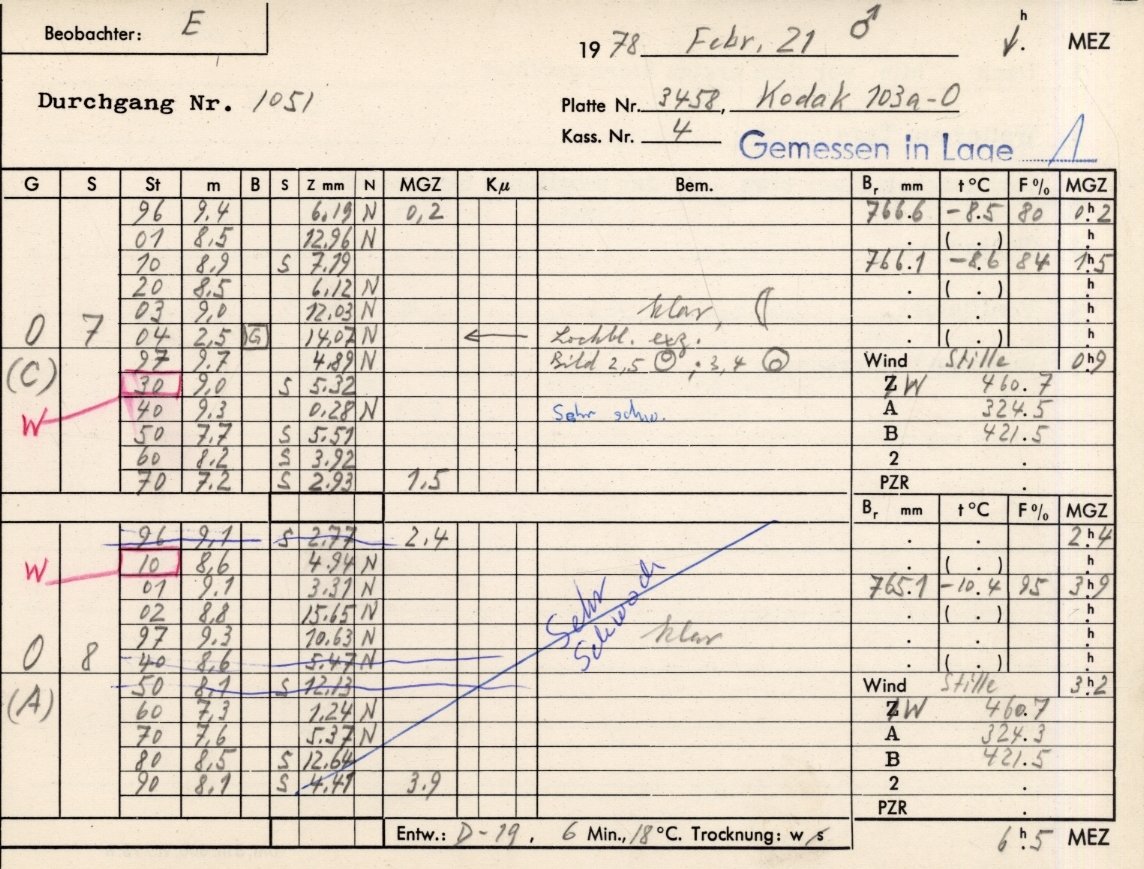 Beobachter: E
1978 Febr. 21 ♂ h . MEZ
Durchgang Nr. 1051
Platte Nr. 3458, Kodak 103a-O
Kass. Nr. 4
Gemessen in Lage 1
G S St m B S Z mm N MGZ Kμ Bem. Br mm t °C F% MGZ
96 9,4 6,19 N 0,2 766.6 -8.5 80 0h2
01 8,5 12,96 N . ( . ) h
10 8,9 S 7.19 766.1 -8.6 84 1h5
20 8,5 6,12 N . ( . ) h
03 9,0 12,03 N klar,
0 7 04 2,5 G 14,07 N ← Lochbl. exz. . ( . ) h
(C) 97 9.7 4.89 N Bild 2,5 ; 3,4 Wind Stille 0h9
W 30 9,0 S 5.32 Z W 460.7
40 9,3 0,28 N Sehr schw. A 324.5
50 7.7 S 5.51 B 421.5
60 8.2 S 3.92 2 .
70 7.2 S 2.93 1,5 PZR .
Br mm t °C F% MGZ
96 9,1 S 2.77 2,4 . . 2h4
W 10 8,6 4.94 N . ( . ) h
01 9.1 3.31 N 765.1 -10.4 95 3h9
02 8,8 15.65 N . ( . ) h
97 9.3 10.63 N Sehr Schwach klar . . h
0 8 40 8,6 5.47 N . ( . ) h
(A) 50 8,1 S 12.13 Wind Stille 3h2
60 7,3 1,24 N Z W 460.7
70 7,6 5.37 N A 324.3
80 8,5 S 12.64 B 421.5
90 8,1 S 4.41 3.9 2 .
PZR .
Entw.: D-19, 6 Min., 18 °C. Trocknung: w/s 6h5 MEZ